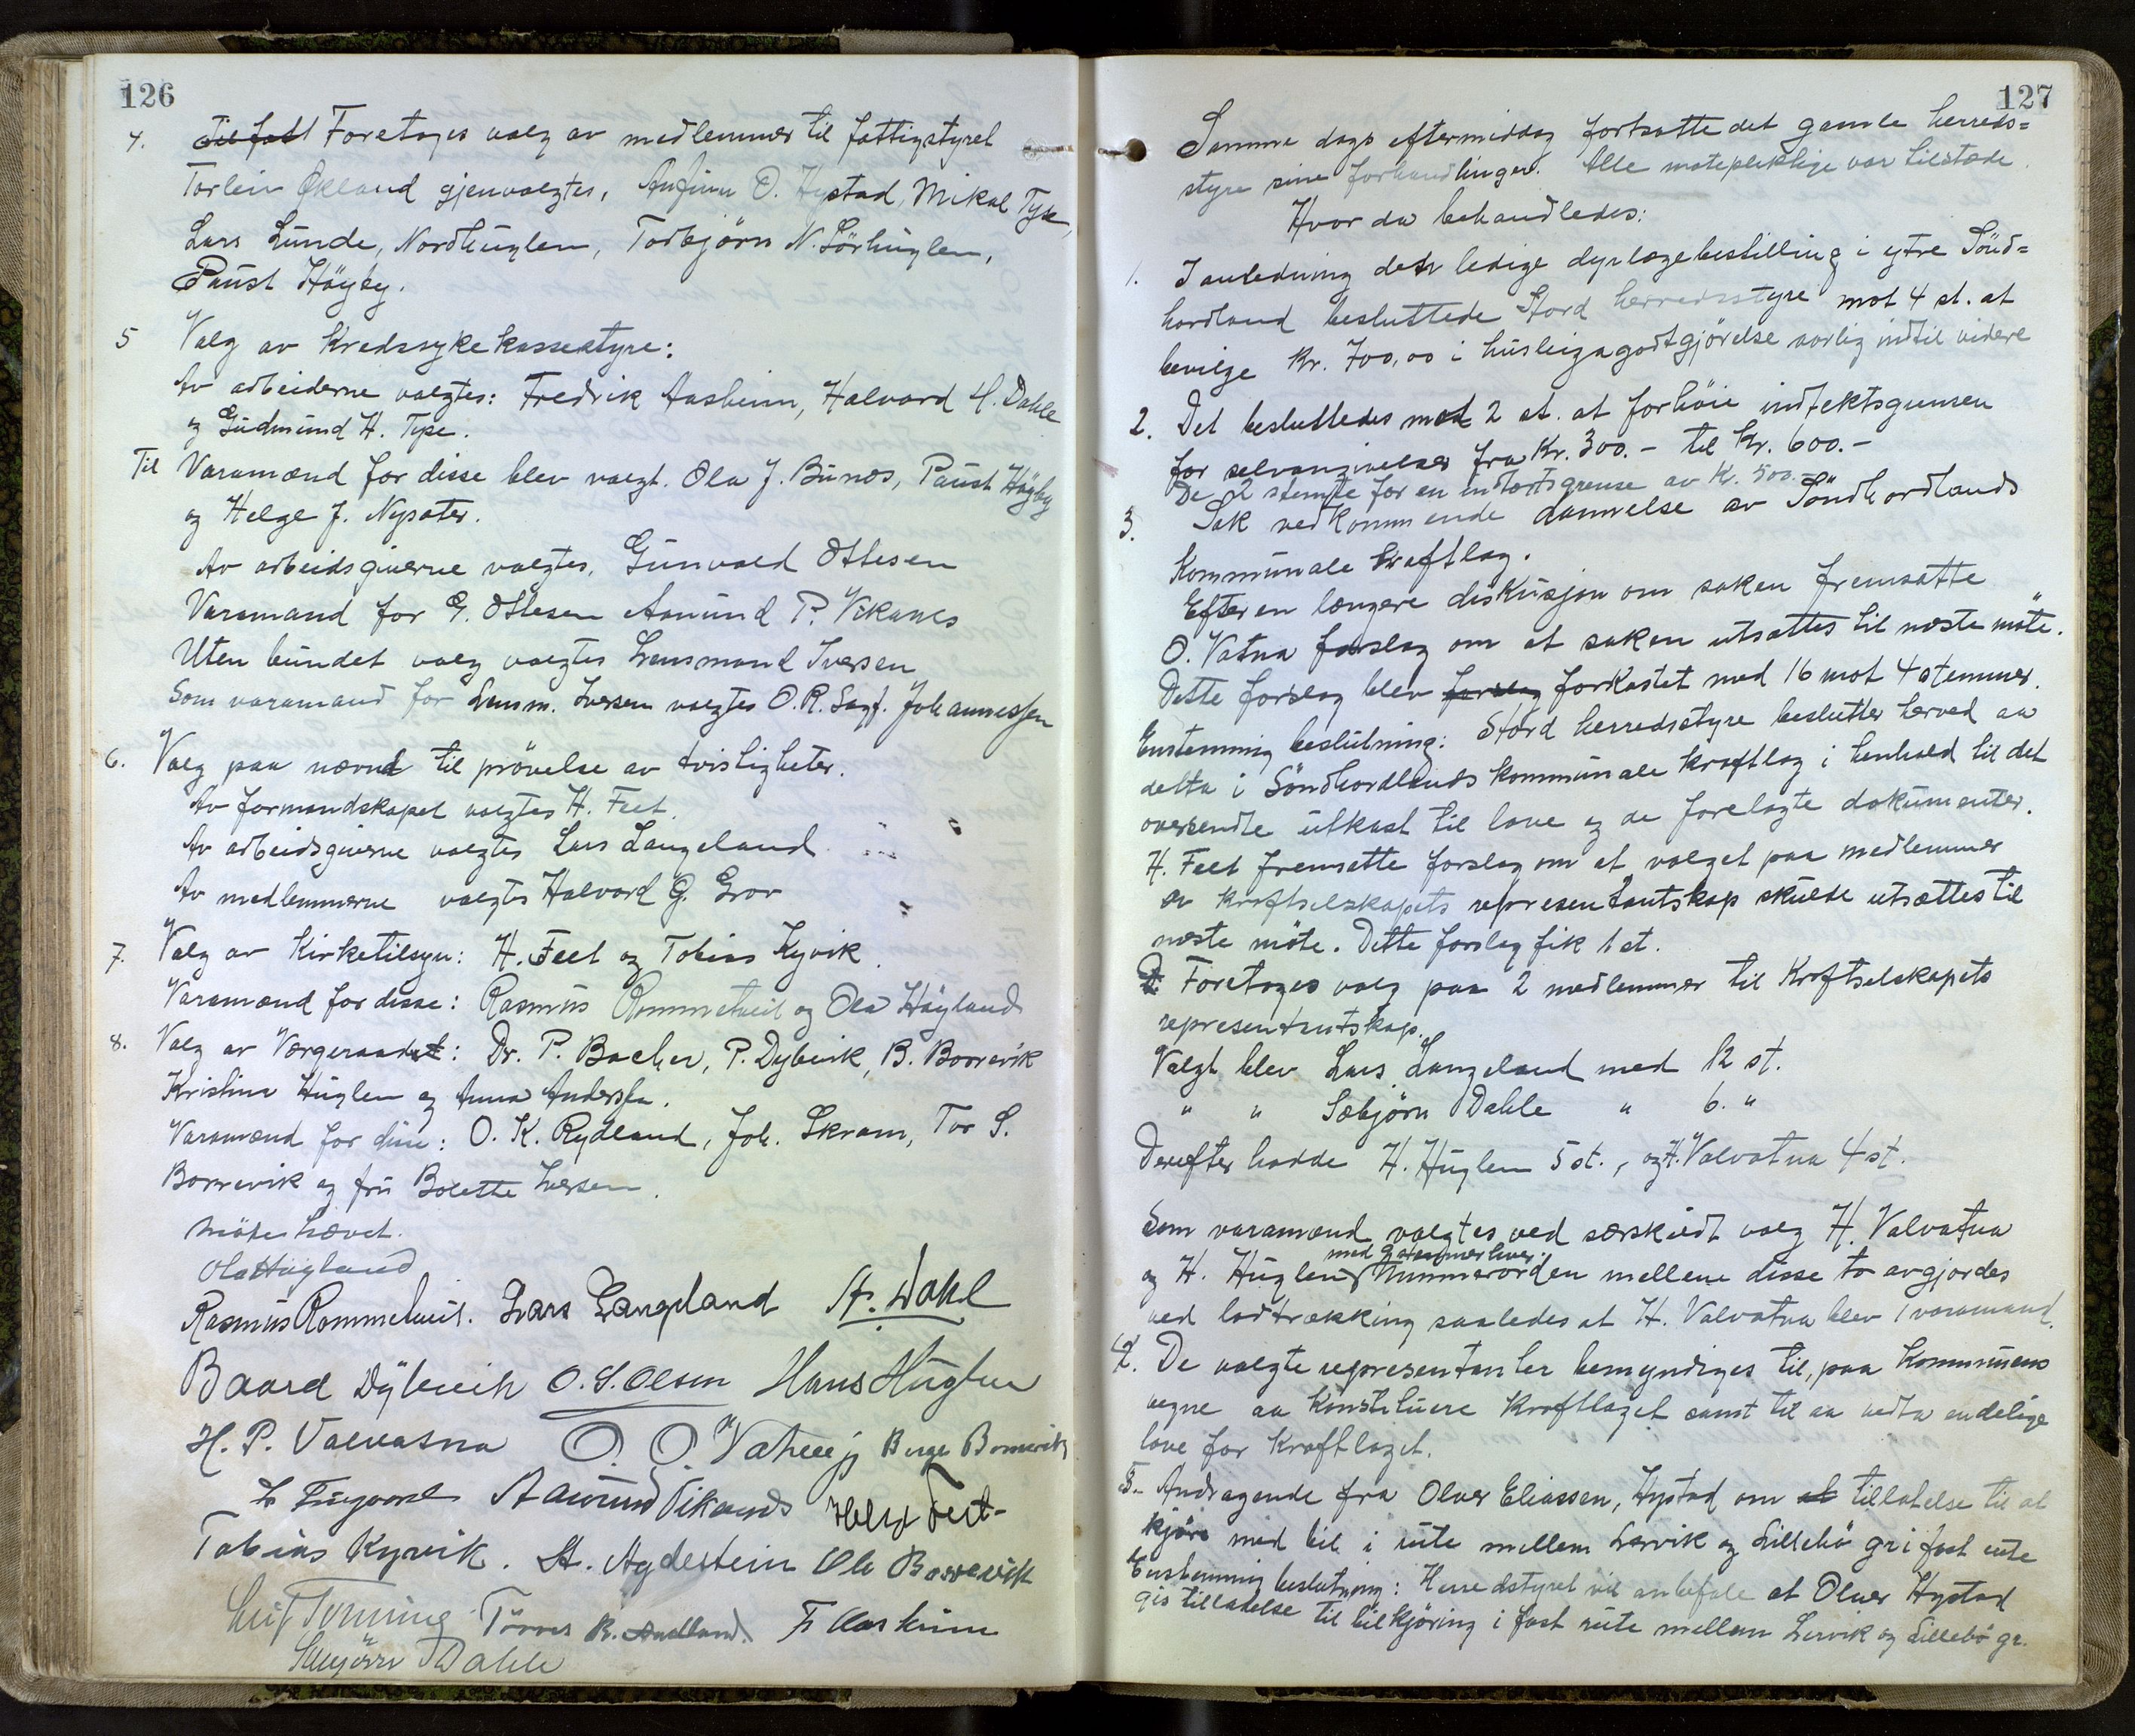 126
4. Til fatt Foretoges valg av medlemmer til fattigstyret
Torleiv Økland gjenvalgtes, Anfinn O. Hystad, Mikal Tyse,
Lars Lunde, Nordhuglen, Torbjörn N. Sörhuglen,
Paust Högby.
5 Valg av Kredssykekassestyre:
Av arbeiderne valgtes: Fredrik Aasheim, Halvard H. Dahle
og Gudmund H. Tyse.
Til Varamænd for disse blev valgt. Ola J. Bunes, Paust Högby
og Helge J. Nysæter.
Av arbeidsgiverne valgtes, Gunvald Ottesen
Varamand for G. Ottesen Aamund P. Vikanes
Uten bundet valg valgtes Lensmand Iversen
Som varamand for Lensm. Iversen valgtes O. R. Sagf. Johannessen
6. Valg paa nævnd til prövelse av tvistigheter.
Av formandskapet valgtes H. Feet.
Av arbeidsgiverne valgtes Lars Langeland
Av medlemmerne valgtes Halvard G. Grov
7. Valg av Kirketilsyn: H. Feet og Tobias Kyvik.
Varamænd for disse: Rasmus Rommetveit og Ola Högland
8. Valg av Vergeraadet: Dr. P. Bacher, P. Dybvik, B. Borrevik
Kristina Huglen og Anna Anderssen.
Varamænd for disse: O. K. Rydland, Joh. Skram, Tor S.
Borrevik og fru Bolette Iversen.
Möte hævet.
Ola Högland
Rasmus Rommetveit. Lars Langeland St. Dahl
Baard Dÿbvik O. S. Olsen Hans Huglen
H. P. Valvatna O. O. Vatna Berge Borrevik
Aamund Vikanes Helge Feet
Tobias Kyvik. St. Agdestein Ole Borrevik
Leif Terning Törres R. Aadland. F. Aasheim
Sæbjörn Dahle
127
Samme dags eftermiddag fortsatte det gamle herreds=
styre sine forhandlinger. Alle mötepliktige var tilstæde.
Hvor da behandledes:
1. I anledning den ledige dyrlægebestilling i ytre Sönd=
hordland besluttede Stord herredsstyre mot 4 st. at
bevilge kr. 700,00 i husleigagodtgjörelse aarlig indtil videre
2. Det besluttedes mot 2 st. at forhöie indtektsgrensen
for selvangivelser fra kr. 300.- til kr. 600.-
De 2 stemte for en indtektsgrense av kr. 500.-
3. Sak vedkommende dannelse av Söndhordlands
Kommunale kraftlag.
Efter en længere diskusjon om saken fremsatte
O. Vatna forslag om at saken utsættes til næste möte.
Dette forslag blev forslag forkastet med 16 mot 4 stemmer.
Enstemmig beslutning: Stord herredsstyre beslutter herved aa
delta i Söndhordlands kommunale kraftlag i henhold til det
oversendte utkast til love og de forelagte dokumenter.
H. Feet fremsatte forslag om at valget paa medlemmer
av kraftselskapets representantskap skulde utsættes til
næste möte. Dette forslag fik 1 st.
Foretoges valg paa 2 medlemmer til Kraftselskapets
representantskap.
Valgt blev Lars Langeland med 12 st.
" " Sæbjörn Dahle " 6. "
Derefter hadde H. Huglen 5 st., og H. Valvatna 4 st.
Som varamænd valgtes ved særskildt valg H. Valvatna
med 9 stemmer hver.
og H. Huglen Nummerorden mellem disse to avgjordes
ved lodtrækking saaledes at H. Valvatna blev 1 varamand.
4. De valgte representanter bemyndiges til, paa Kommunens
vegne aa konstituere Kraftlaget samt til aa vedta endelige
love for Kraftlaget.
5. Andragende fra Oluer Eliassen, Hystad om at tillatelse til at
kjöre med bil i rute mellem Lervik og Lillebö gr i fast rute
Enstemmig beslutning: Herredstyret vil anbefale at Oluer Hystad
gis tilladelse til bilkjöring i fast rute mellem Lervik og Lillebö gr.